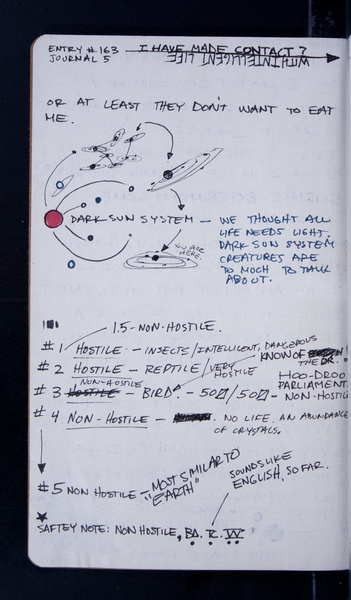 ENTRY # 163
JOURNAL 5
I HAVE MADE CONTACT?
WITH INTELLIGENT LIFE
OR AT LEAST THEY DON'T WANT TO EAT
ME.
DARK SUN SYSTEM — WE THOUGHT ALL
LIFE NEEDS LIGHT.
DARK SUN SYSTEM
CREATURES ARE
TO MUCH TO TALK
ABOUT.
YOU ARE
HERE.
1.5-NON-HOSTILE.
#1 HOSTILE — INSECTS/INTELLIGENT, DANGEROUS
KNOW OF
THE DR.
#2 HOSTILE — REPTILE/VERY
HOSTILE
NON-HOSTILE
#3 HOSTILE — BIRD — 50%/50% —
HOO-DROO
PARLIAMENT.
NON-HOSTIL
#4 NON-HOSTILE — NO LIFE. AN ABUNDANCE
OF CRYSTALS.
#5 NON HOSTILE — MOST SIMILAR TO
"EARTH"
SOUNDS LIKE
ENGLISH, SO FAR.
SAFTEY NOTE: NON HOSTILE,